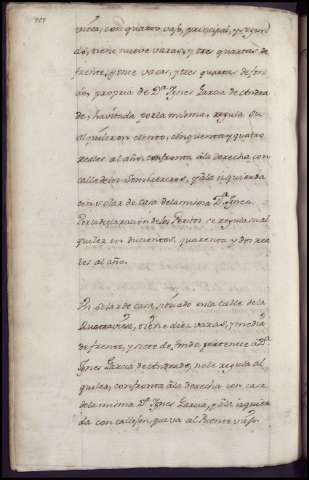 con quarto vajo, principal, y segun
do, tiene nueve varas, y tres quartas de
frente, y once varas, y tres quartas de fon
do, propria de Dª Ygnes Garcia de Andra
de, havitada por la misma, regula su
alquiler en ciento, cinquenta y quatro
reales al año, confronta âla derecha con
calle de los Sombrereros, y âla izquierda
con solar de casa dela misma Dª Ygnes.
Por la declaración de los Peritos se regula su al
quiler en ducientos, quarenta y dos rea
les al año.
Un Solar de casa, situado en la calle de la
tiene diez varas, y media
de frente, y siete de fondo, pertenece â Dª
Ygnes Garcia de Andrade, no le regula al
quiler, confronta âla derecha con casa
dela misma Dª Ygnes Garcia, y âla izquier
da con callejon, que va al Puente vajo.